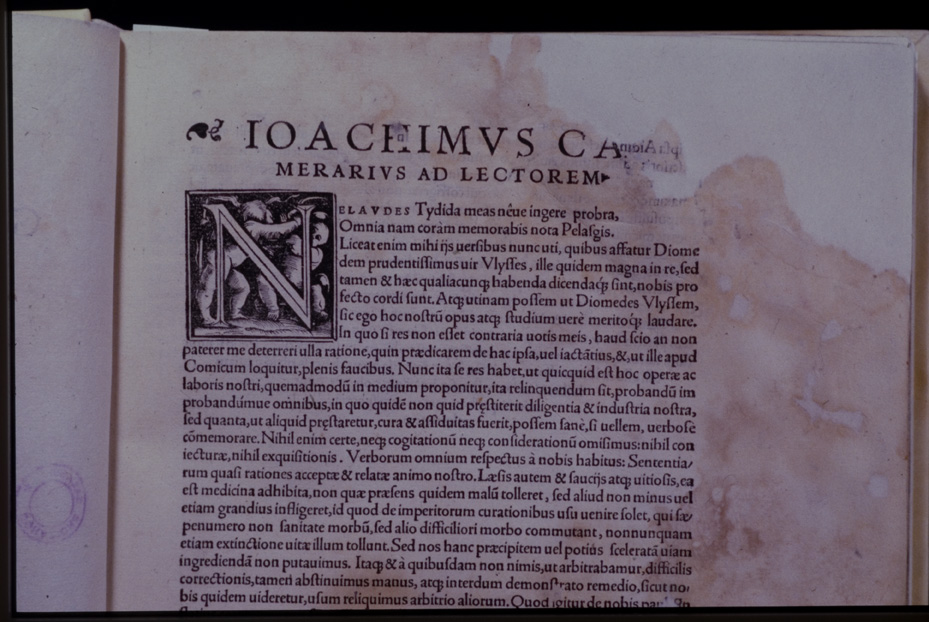 IOACHIMVS CA
MERARIVS AD LECTOREM
NE LAVDES Tydida meas nêue ingere probra,
Omnia nam coràm memorabis nota Pelasgis.
Liceat enim mihi ijs uersibus nunc uti, quibus affatur Diome
dem prudentissimus uir Vlysses, ille quidem magna in re, sed
tamen & hæc qualiacunq; habenda dicendaq́; sint, nobis pro
fecto cordi sunt. Atq; utinam possem ut Diomedes Vlyssem,
sic ego hoc nostrũ opus atq; studium uerè meritoq́; laudare.
In quo si res non esset contraria uotis meis, haud scio an non
paterer me deterreri ulla ratione, quin prædicarem de hac ipsa, uel iactãtius, &, ut ille apud
Comicum loquitur, plenis faucibus. Nunc ita se res habet, ut quicquid est hoc operæ ac
laboris nostri, quemadmodũ in medium proponitur, ita relinquendum sit, probandũ im
probandúmue omnibus, in quo quidẽ non quid pręstiterit diligentia & industria nostra,
sed quanta, ut aliquid pręstaretur, cura & assiduitas fuerit, possem sanè, si uellem, uerbosè
cõmemorare. Nihil enim certe, neq; cogitationũ neq; considerationũ omisimus: nihil con
iecturæ, nihil exquisitionis. Verborum omnium respectus à nobis habitus: Sententia/
rum quasi rationes acceptæ & relatæ animo nostro. Læsis autem & saucijs atq; uitiosis, ea
est medicina adhibita, non quæ præsens quidem malũ tolleret, sed aliud non minus uel
etiam grandius infligeret, id quod de imperitorum curationibus usu uenire solet, qui sæ/
penumero non sanitate morbũ, sed alio difficiliori morbo commutant, nonnunquam
etiam extinctione uitæ illum tollunt. Sed nos hanc præcipitem uel potiùs sceleratã uiam
ingrediendã non putauimus. Itaq; & à quibusdam non nimis, ut arbitrabamur, difficilis
correctionis, tamen abstinuimus manus, atq; interdum demonstrato remedio, sicut no/
bis quidem uideretur, usum reliquimus arbitrio aliorum. Quod igitur de nobis